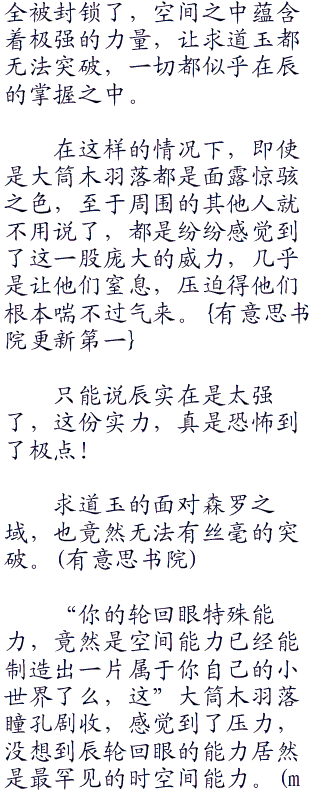 全被封锁了，空间之中蕴含
着极强的力量，让求道玉都
无法突破，一切都似乎在辰
的掌握之中。
在这样的情况下，即使
是大筒木羽落都是面露惊骇
之色，至于周围的其他人就
不用说了，都是纷纷感觉到
了这一股庞大的威力，几乎
是让他们窒息，压迫得他们
根本喘不过气来。{有意思书
院更新第一}
只能说辰实在是太强
了，这份实力，真是恐怖到
了极点！
求道玉的面对森罗之
域，也竟然无法有丝毫的突
破。(有意思书院)
“你的轮回眼特殊能
力，竟然是空间能力已经能
制造出一片属于你自己的小
世界了么，这”大筒木羽落
瞳孔剧收，感觉到了压力，
没想到辰轮回眼的能力居然
是最罕见的时空间能力。(m